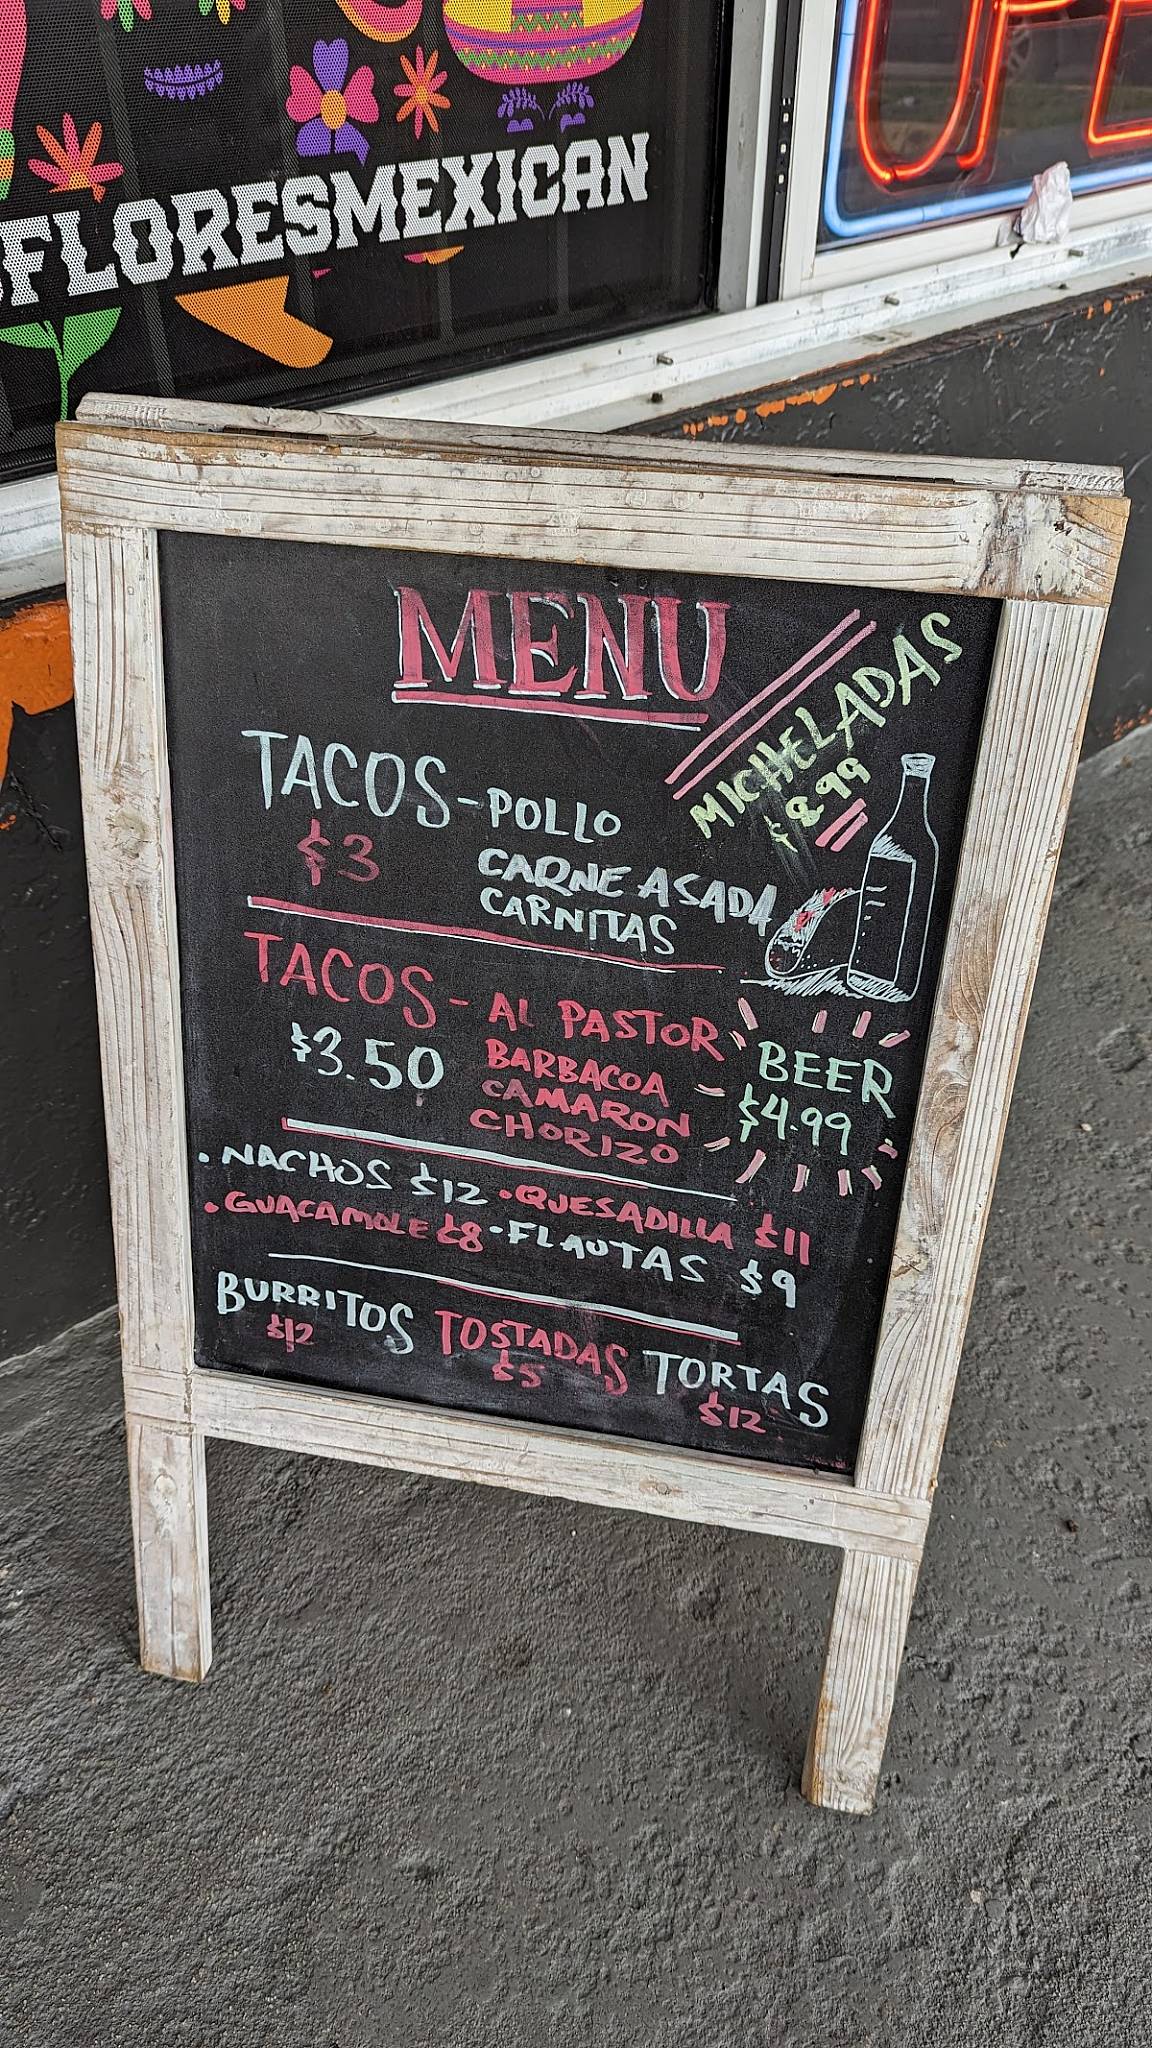 FLORESMEXICAN
MENU
MICHELADAS
$8.99
TACOS - POLLO
$3
CARNE ASADA
CARNITAS
TACOS - AL PASTOR
$3.50
BARBACOA
CAMARON
CHORIZO
BEER
$4.99
• NACHOS $12 • QUESADILLA $11
• GUACAMOLE $8 • FLAUTAS $9
BURRITOS TOSTADAS TORTAS
$12 $5 $12